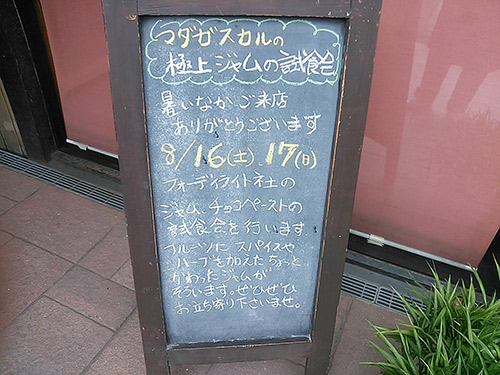 マダガスカルの
極上ジャムの試食会
暑いなかご来店
ありがとうございます
8/16(土).17(日)
フォーディライト社の
ジャム、チョコペーストの
試食会を行います
フルーツに スパイスや
ハーブを加えた ちょっと
かわったジャムが
そろいます。ぜひぜひ
お立ち寄り下さいませ。